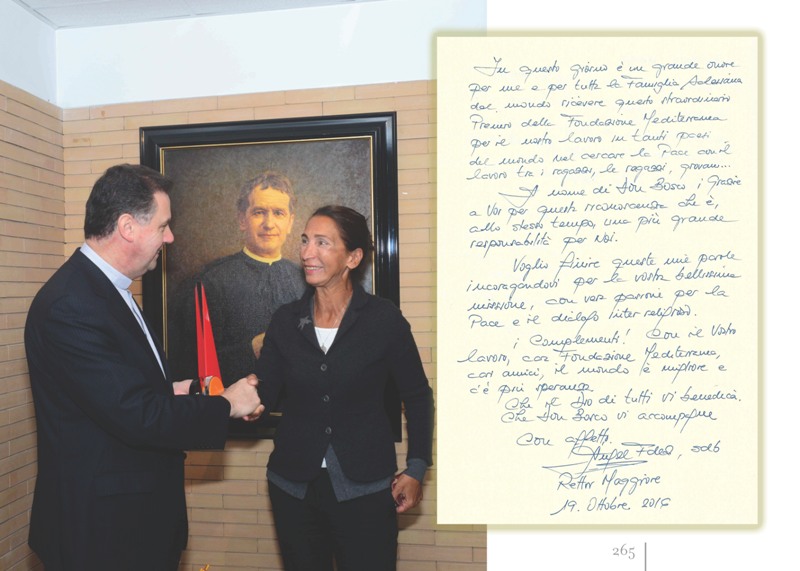 In questo giorno è un grande onore
per me e per tutta la Famiglia Salesiana
del mondo ricevere questo straordinario
Premio della Fondazione Mediterranea
per il nostro lavoro in tanti paesi
del mondo nel cercare la Pace con il
lavoro tra i ragazzi, le ragazze, giovani...
A nome di Don Bosco ¡ Grazie
a Voi per questa riconoscenza che è,
allo stesso tempo, una più grande
responsabilità per Noi.
Voglio finire queste mie parole
incoragandovi per la vostra bellissima
missione, con vera passione per la
Pace e il dialogo inter religioso.
¡ Complementi! Con il Vostro
lavoro, cara Fondazione Mediterranea,
cari amici, il mondo è migliore e
c'è più speranza.
Che il Dio di tutti vi benedica.
Che Don Bosco vi accompagne
Con affetto.
Ángel Fdez, sdb
Rettor Maggiore
19. Ottobre
265